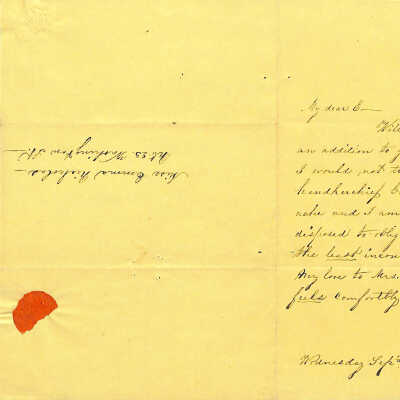 Miss Emma Nichols
No 23. Washington St.
My dear E—
Will
an addition to y
I would not t
handkerchief b
ache and I am
disposed to obly
the least incon
my love to Mrs.
feels comfortbly
Wednesday Sept